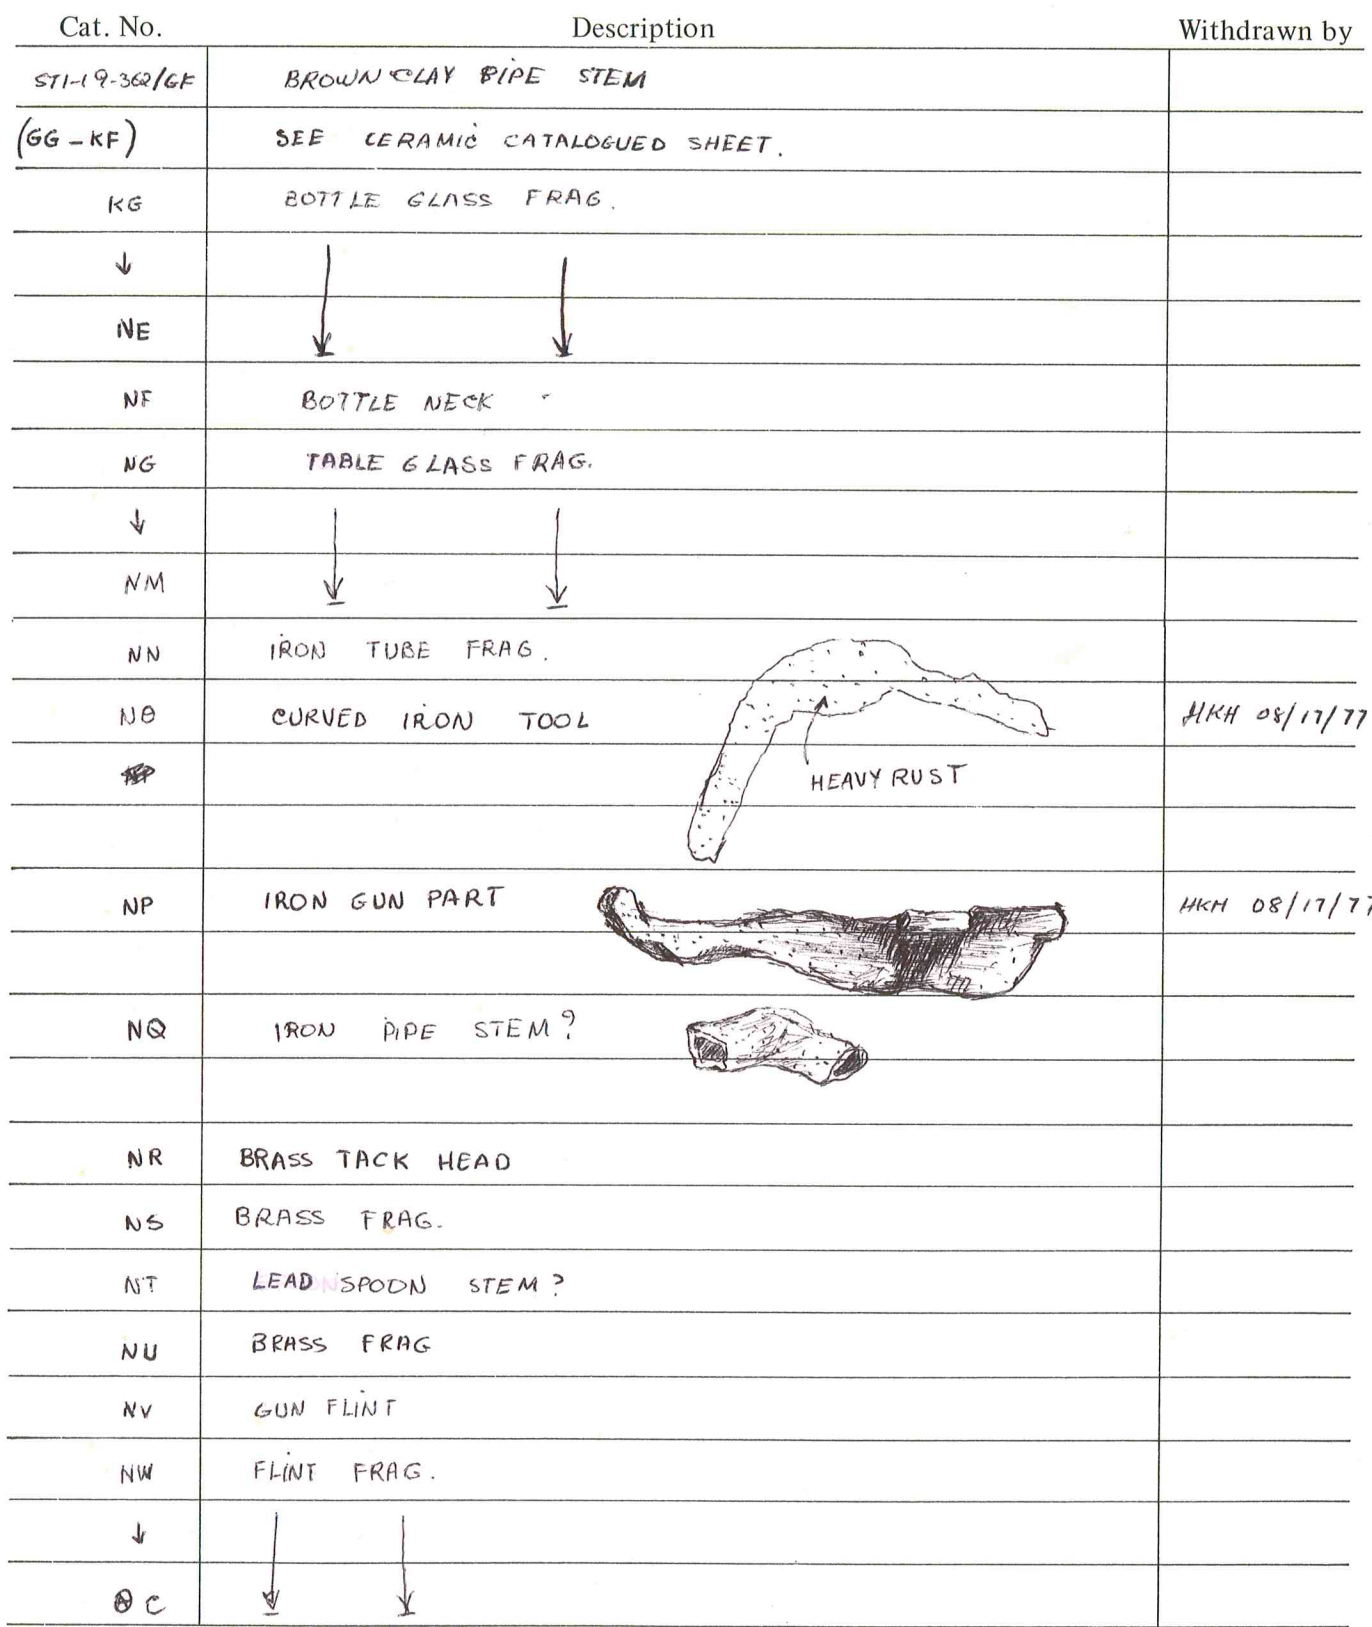 Cat. No. Description Withdrawn by
ST1-19-362/GF BROWN CLAY PIPE STEM
(GG - KF) SEE CERAMIC CATALOGUED SHEET.
KG BOTTLE GLASS FRAG.
↓
NE
NF BOTTLE NECK
NG TABLE GLASS FRAG.
↓
NM
NN IRON TUBE FRAG.
NO CURVED IRON TOOL HKH 08/17/77
HEAVY RUST
NP IRON GUN PART HKH 08/17/77
NQ IRON PIPE STEM?
NR BRASS TACK HEAD
NS BRASS FRAG.
NT LEAD SPOON STEM?
NU BRASS FRAG
NV GUN FLINT
NW FLINT FRAG.
↓
OC